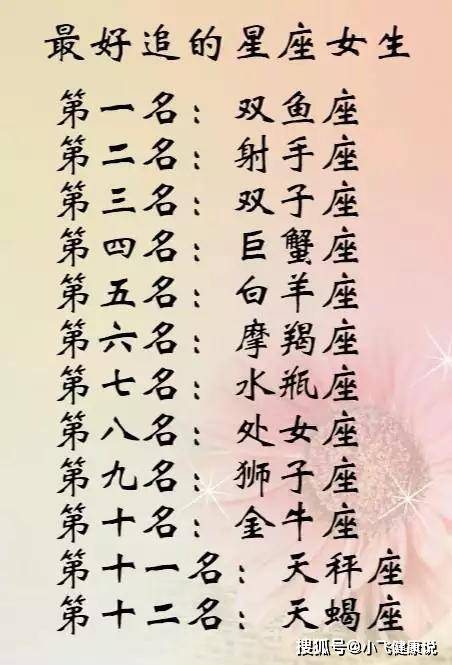 最好追的星座女生
第一名：双鱼座
第二名：射手座
第三名：双子座
第四名：巨蟹座
第五名：白羊座
第六名：摩羯座
第七名：水瓶座
第八名：处女座
第九名：狮子座
第十名：金牛座
第十一名：天秤座
第十二名：天蝎座
搜狐号@小飞健康说